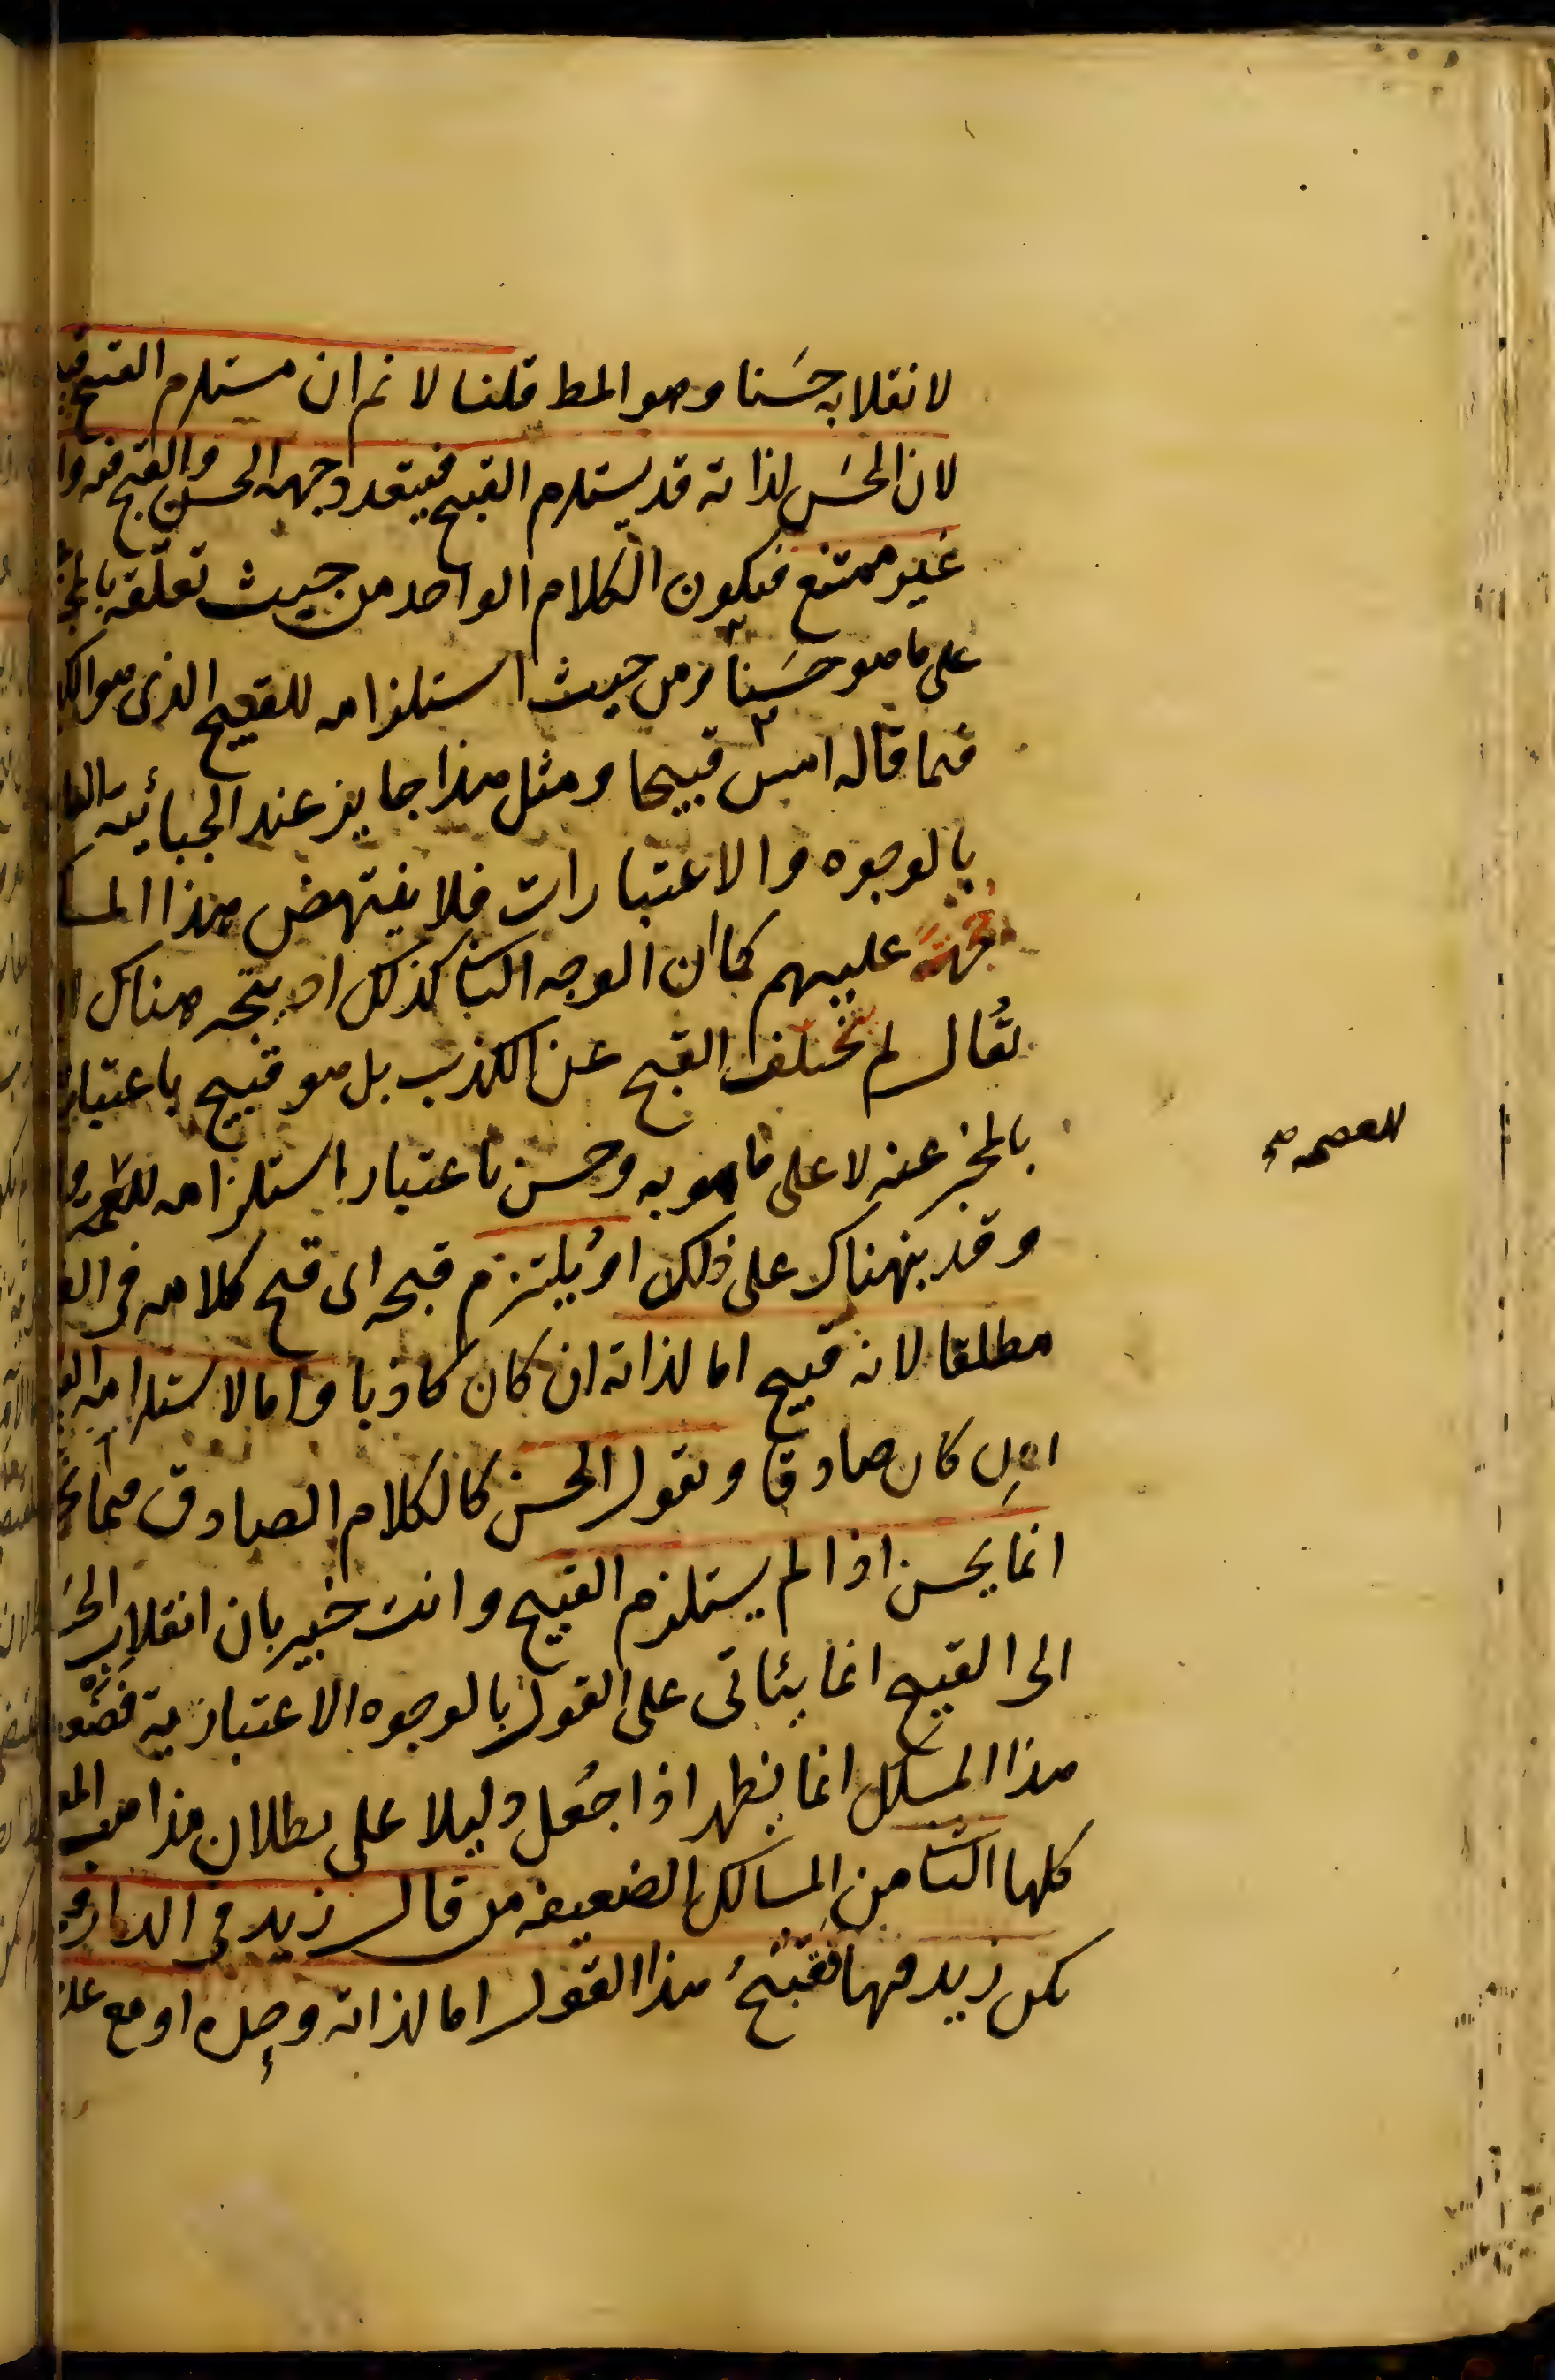 لانقلابه حَسَنا وهو المط قلنا لا نم ان مستلزم القبيح
لان الحَسَن لذاته قد يستلزم القبيح فيتعدد جهة الحسن والقبح فيه وا
غير ممتنع فيكون الكلام الواحد من حيث تعلقه بالمخ
على ما هو حَسَنا ومن حيث استلزامه للقبيح الذى هو الك
فيما قاله امس قبيحا ومثل هذا جايز عند الجبائية القا
بالوجوه والاعتبارات فلا ينتهض هذا المسا
حجة عليهم كما ان الوجه الثا كذلك اذ يتجه هناك ا
يُقال لم يتخلف القبح عن الكذب بل هو قبيح باعتبار
بالمخبر عنه لا على ما هو به وحسن باعتبار استلزامه للعصمة
وقد نبهناك على ذلك او يُلتزم قبحه اى قبح كلامه فى الغ
مطلقا لانه قبيح اما لذاته ان كان كاذبا واما لاستلزامه الق
ان كان صادقا ونقول الحسن كالكلام الصادق فيما نح
انما يحسن اذا لم يستلزم القبيح وانت خبير بان انقلاب الحَ
الى القبيح انما يتأتى على القول بالوجوه الاعتبارية فضعف
هذا المسلك انما يظهر اذا جعل دليلا على بطلان مذاهب المع
كلها الثامن المسالك الضعيفة من قال زيد فى الدار و
يكن زيد فيها فقُبْحُ هذا القول اما لذاته وحده او مع عد
للعصمة صح